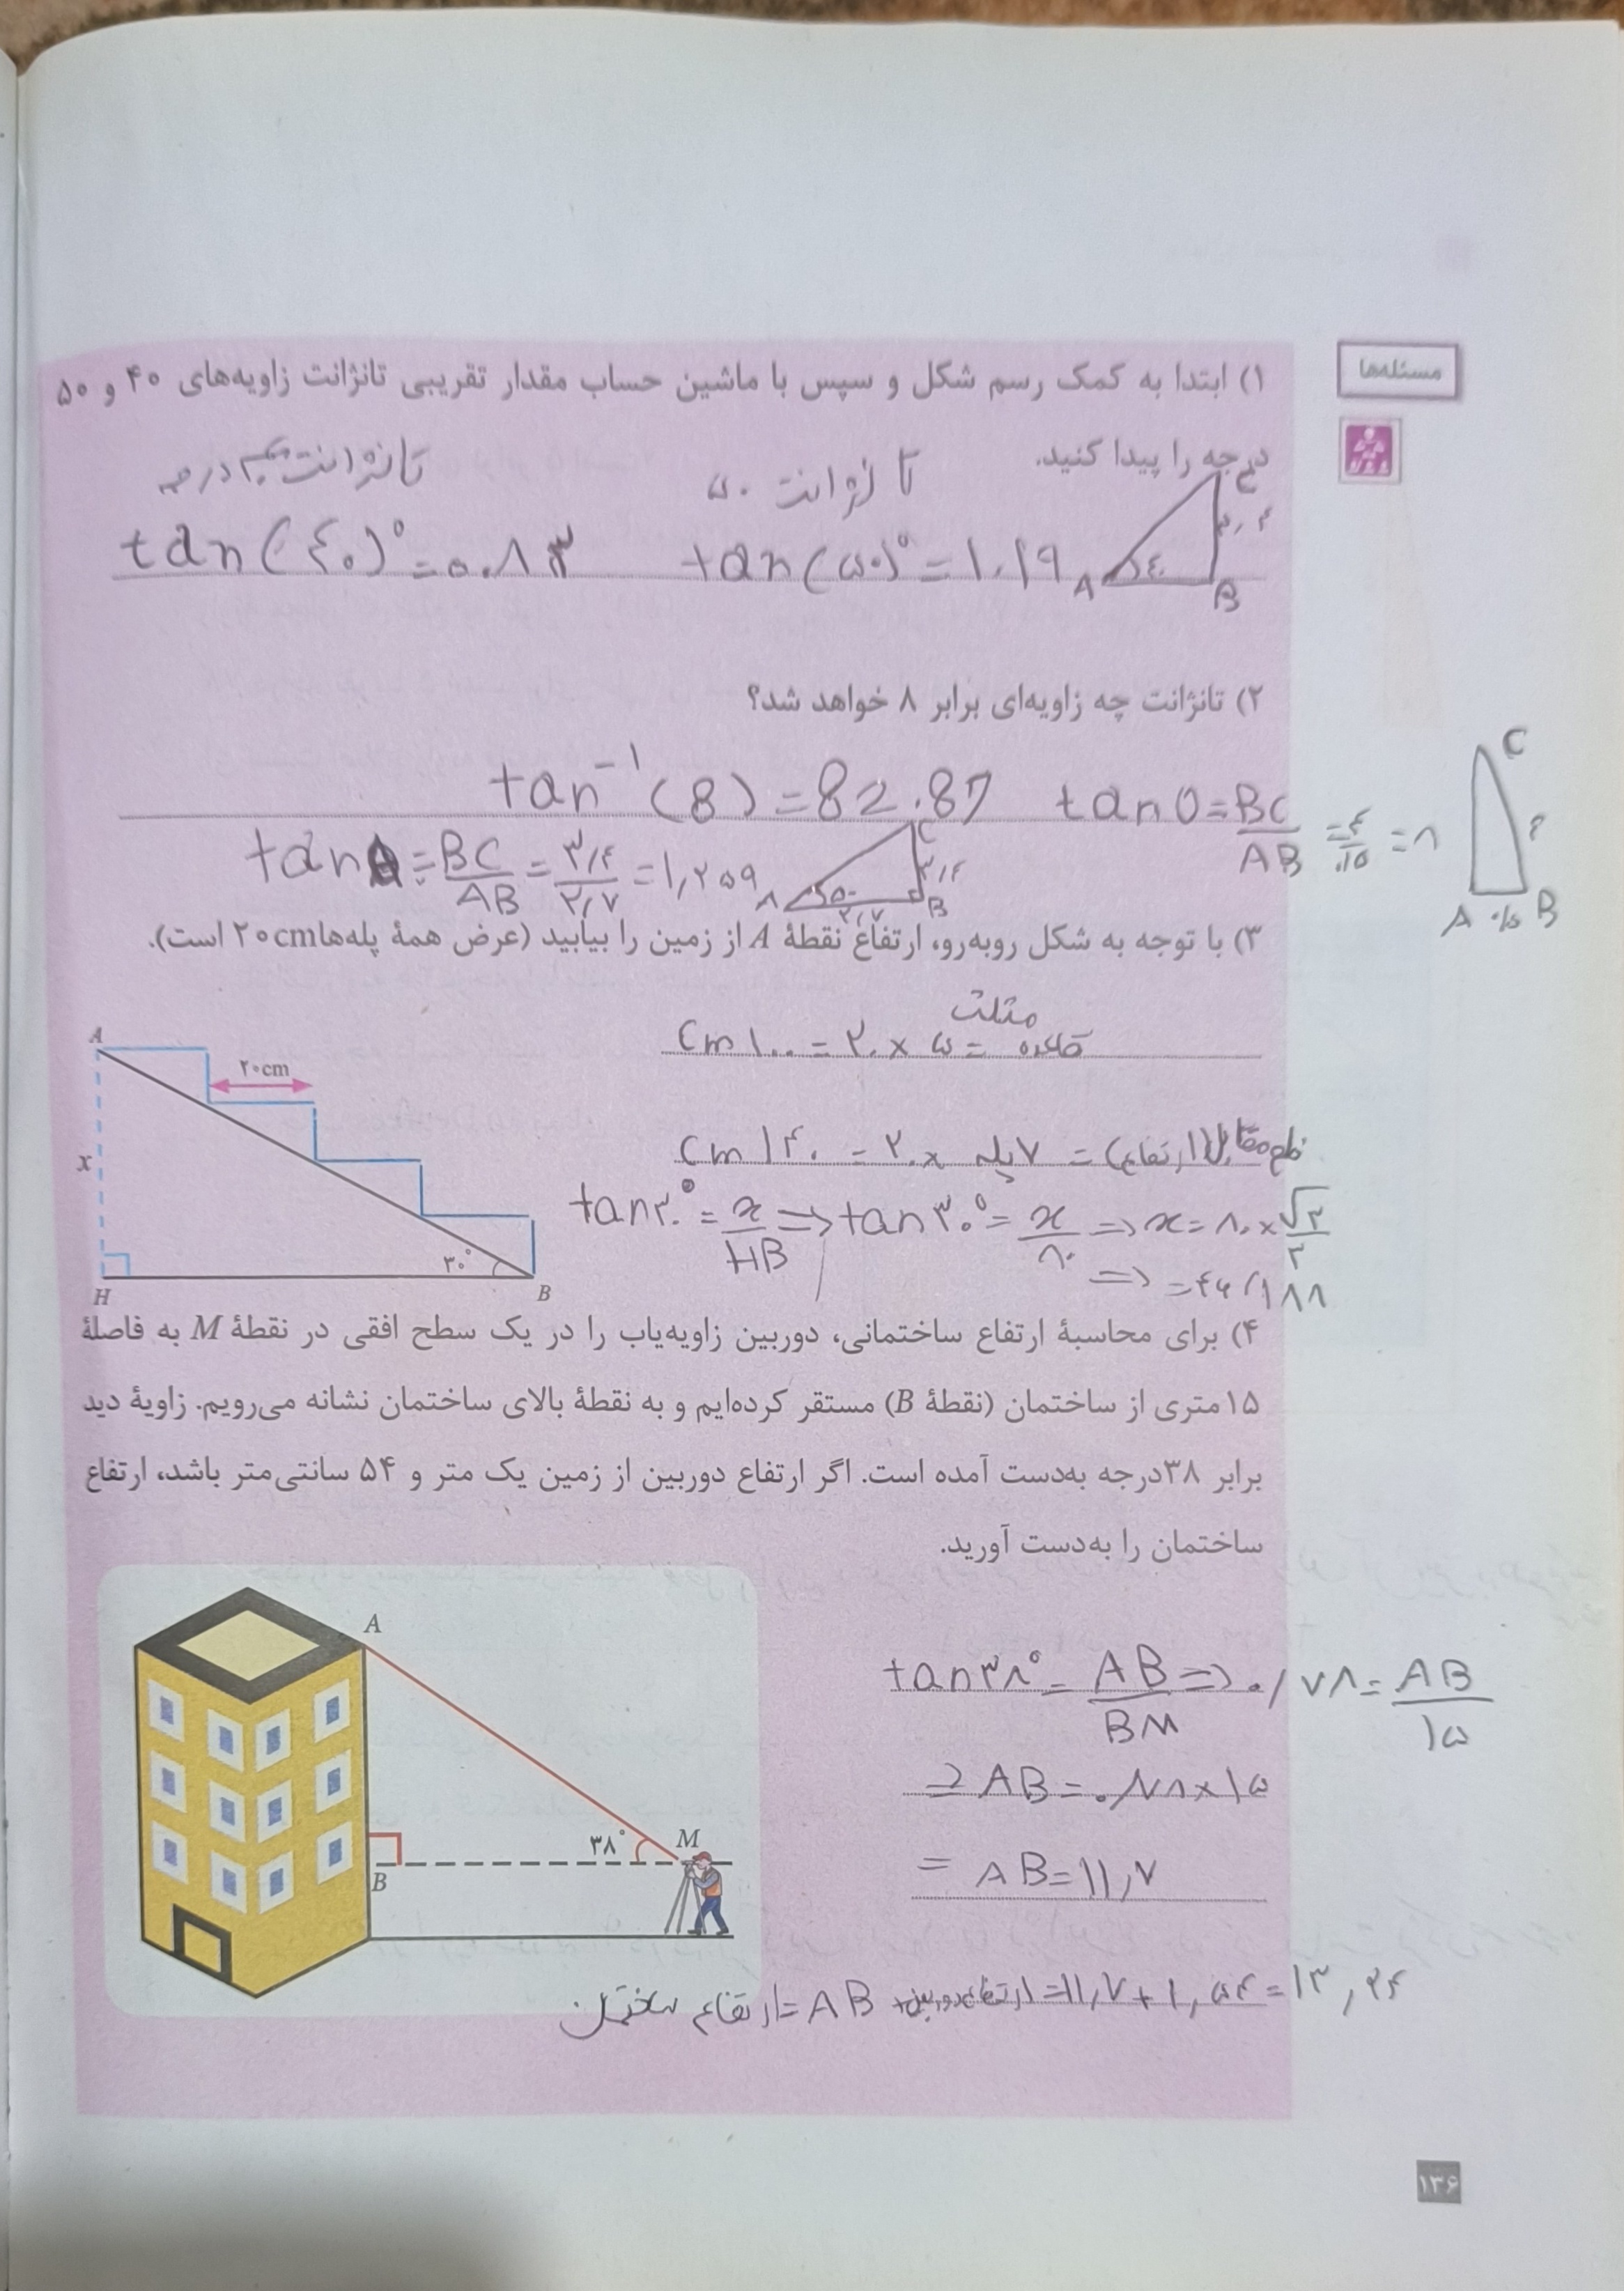 مسئله‌ها
۱) ابتدا به کمک رسم شکل و سپس با ماشین حساب مقدار تقریبی تانژانت زاویه‌های ۴۰ و ۵۰
درجه را پیدا کنید.
تانژانت ۵۰
تانژانت ۴۰ درجه
A B ۴۰
tan(۵۰)° = ۱.۱۹
tan(۴۰)° = ۰.۸۳
۲) تانژانت چه زاویه‌ای برابر ۸ خواهد شد؟
tan⁻¹(8) = 82.87
tan θ = BC/AB = ۴/.۱۵ = ۸
C ۴ A B
tan = BC/AB = ۳/۴ / ۲/۷ = ۱,۲۵۹
A ۵۰ ۲/۷ B ۳/۴ C
۳) با توجه به شکل روبه‌رو، ارتفاع نقطهٔ A از زمین را بیابید (عرض همهٔ پله‌ها ۲۰cm است).
مثلث
قاعده = ۵ × ۲۰ = ۱۰۰ cm
ضلع مقابل (ارتفاع) = ۷ پله × ۲۰ = ۱۴۰ cm
tan۳۰° = x/HB ⇒ tan۳۰° = x/۸۰ ⇒ x = ۸۰ × √۳/۳
⇒ = ۴۶/۱۸۸
A
۲۰cm
x
۳۰°
H
B
۴) برای محاسبهٔ ارتفاع ساختمانی، دوربین زاویه‌یاب را در یک سطح افقی در نقطهٔ M به فاصلهٔ
۱۵ متری از ساختمان (نقطهٔ B) مستقر کرده‌ایم و به نقطهٔ بالای ساختمان نشانه می‌رویم. زاویهٔ دید
برابر ۳۸درجه به‌دست آمده است. اگر ارتفاع دوربین از زمین یک متر و ۵۴ سانتی‌متر باشد، ارتفاع
ساختمان را به‌دست آورید.
A
۳۸°
M
B
tan۳۸° = AB/BM ⇒ ۰/۷۸ = AB/۱۵
⇒ AB = ۰/۷۸ × ۱۵
= AB = ۱۱,۷
ارتفاع ساختمان = AB + ارتفاع دوربین = ۱۱,۷ + ۱,۵۴ = ۱۳,۲۴
۱۳۶